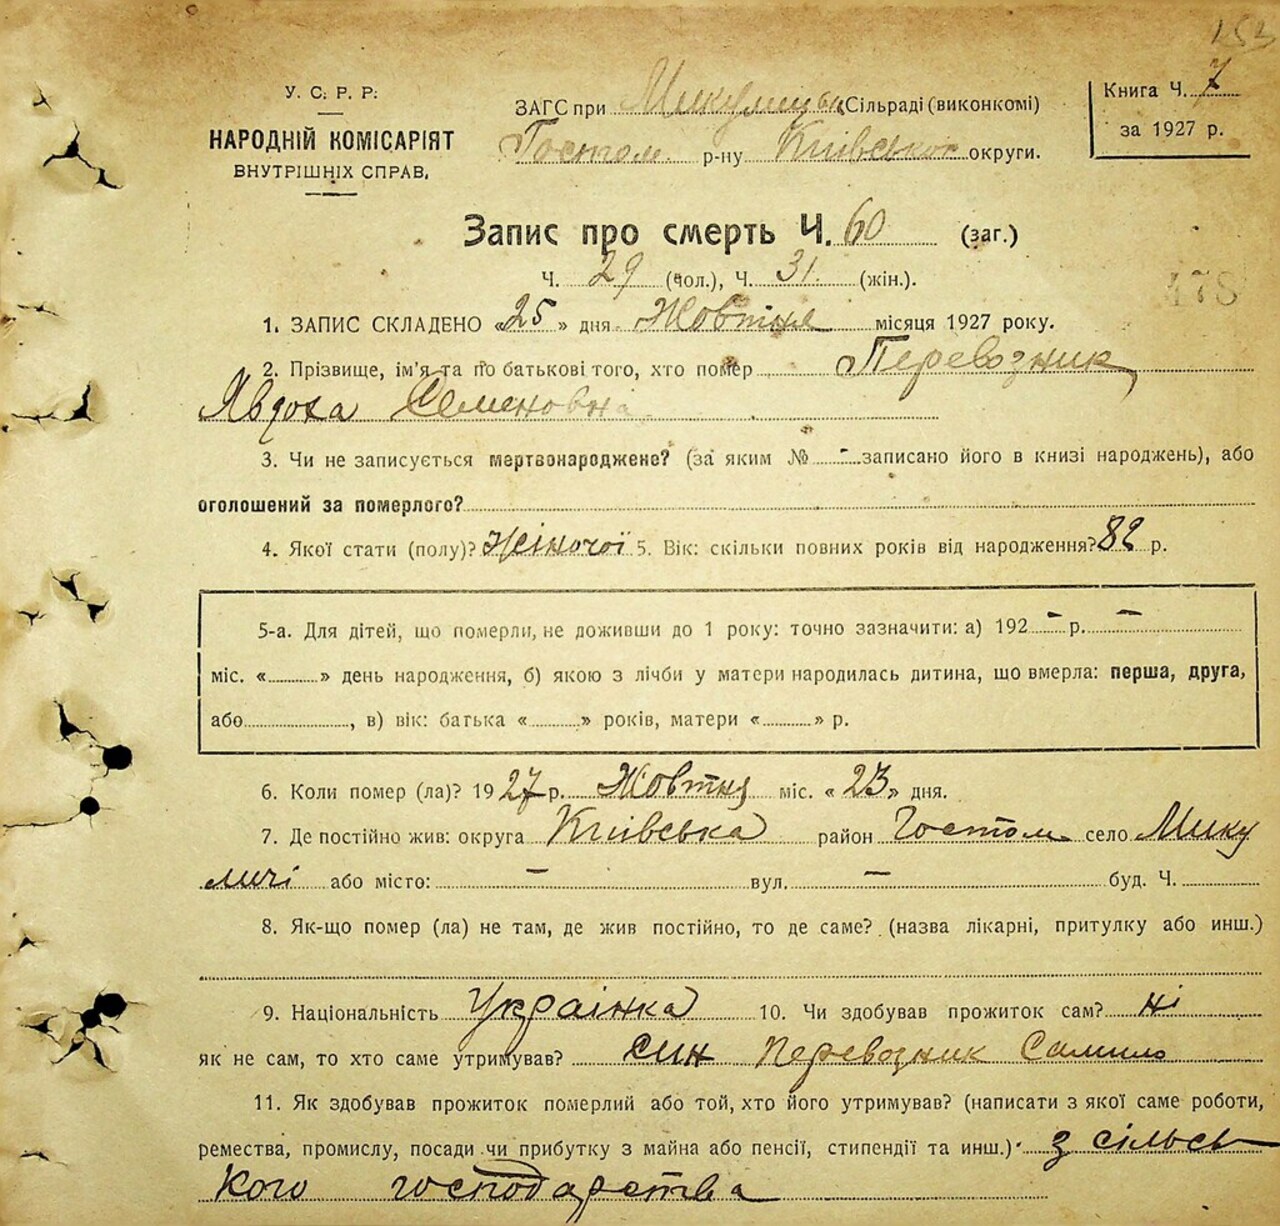 152
У. С. Р. Р.
НАРОДНІЙ КОМІСАРІЯТ
ВНУТРІШНІХ СПРАВ.
ЗАГС при Микулицькі Сільраді (виконкомі)
Гостом. р-ну Київської округи.
Книга Ч. 7
за 1927 р.
Запис про смерть Ч. 60 (заг.)
Ч. 29 (чол.), Ч. 31 (жін.).
478
1. ЗАПИС СКЛАДЕНО «25» дня Жовтня місяця 1927 року.
2. Прізвище, ім'я та по батькові того, хто помер Перевозник
Явдоха Семеновна
3. Чи не записується мертвонароджене? (за яким № - записано його в книзі народжень), або
оголошений за померлого?
4. Якої стати (полу)? Жіночої 5. Вік: скільки повних років від народження? 82 р.
5-а. Для дітей, що померли, не доживши до 1 року: точно зазначити: а) 192 - р. -
міс. « » день народження, б) якою з лічби у матери народилась дитина, що вмерла: перша, друга,
або , в) вік: батька « » років, матери « » р.
6. Коли помер (ла)? 1927 р. Жовтня міс. «23» дня.
7. Де постійно жив: округа Київська район Гостом село Мику
личі або місто: - вул. - буд. Ч.
8. Як-що помер (ла) не там, де жив постійно, то де саме? (назва лікарні, притулку або инш.)
9. Національність Українка 10. Чи здобував прожиток сам? ні
як не сам, то хто саме утримував? син Перевозник Самило
11. Як здобував прожиток померлий або той, хто його утримував? (написати з якої саме роботи,
ремества, промислу, посади чи прибутку з майна або пенсії, стипендії та инш.) з сільсь
кого господарства